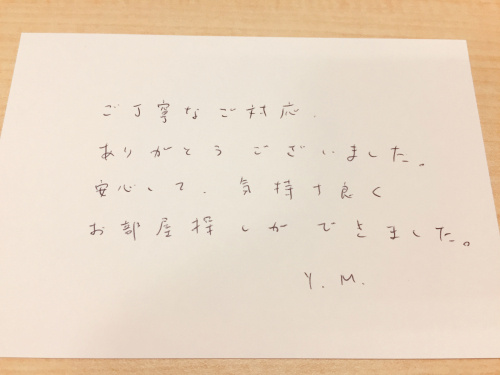 ご丁寧なご対応、
ありがとうございました。
安心して、気持ち良く
お部屋探しができました。
Y.M.